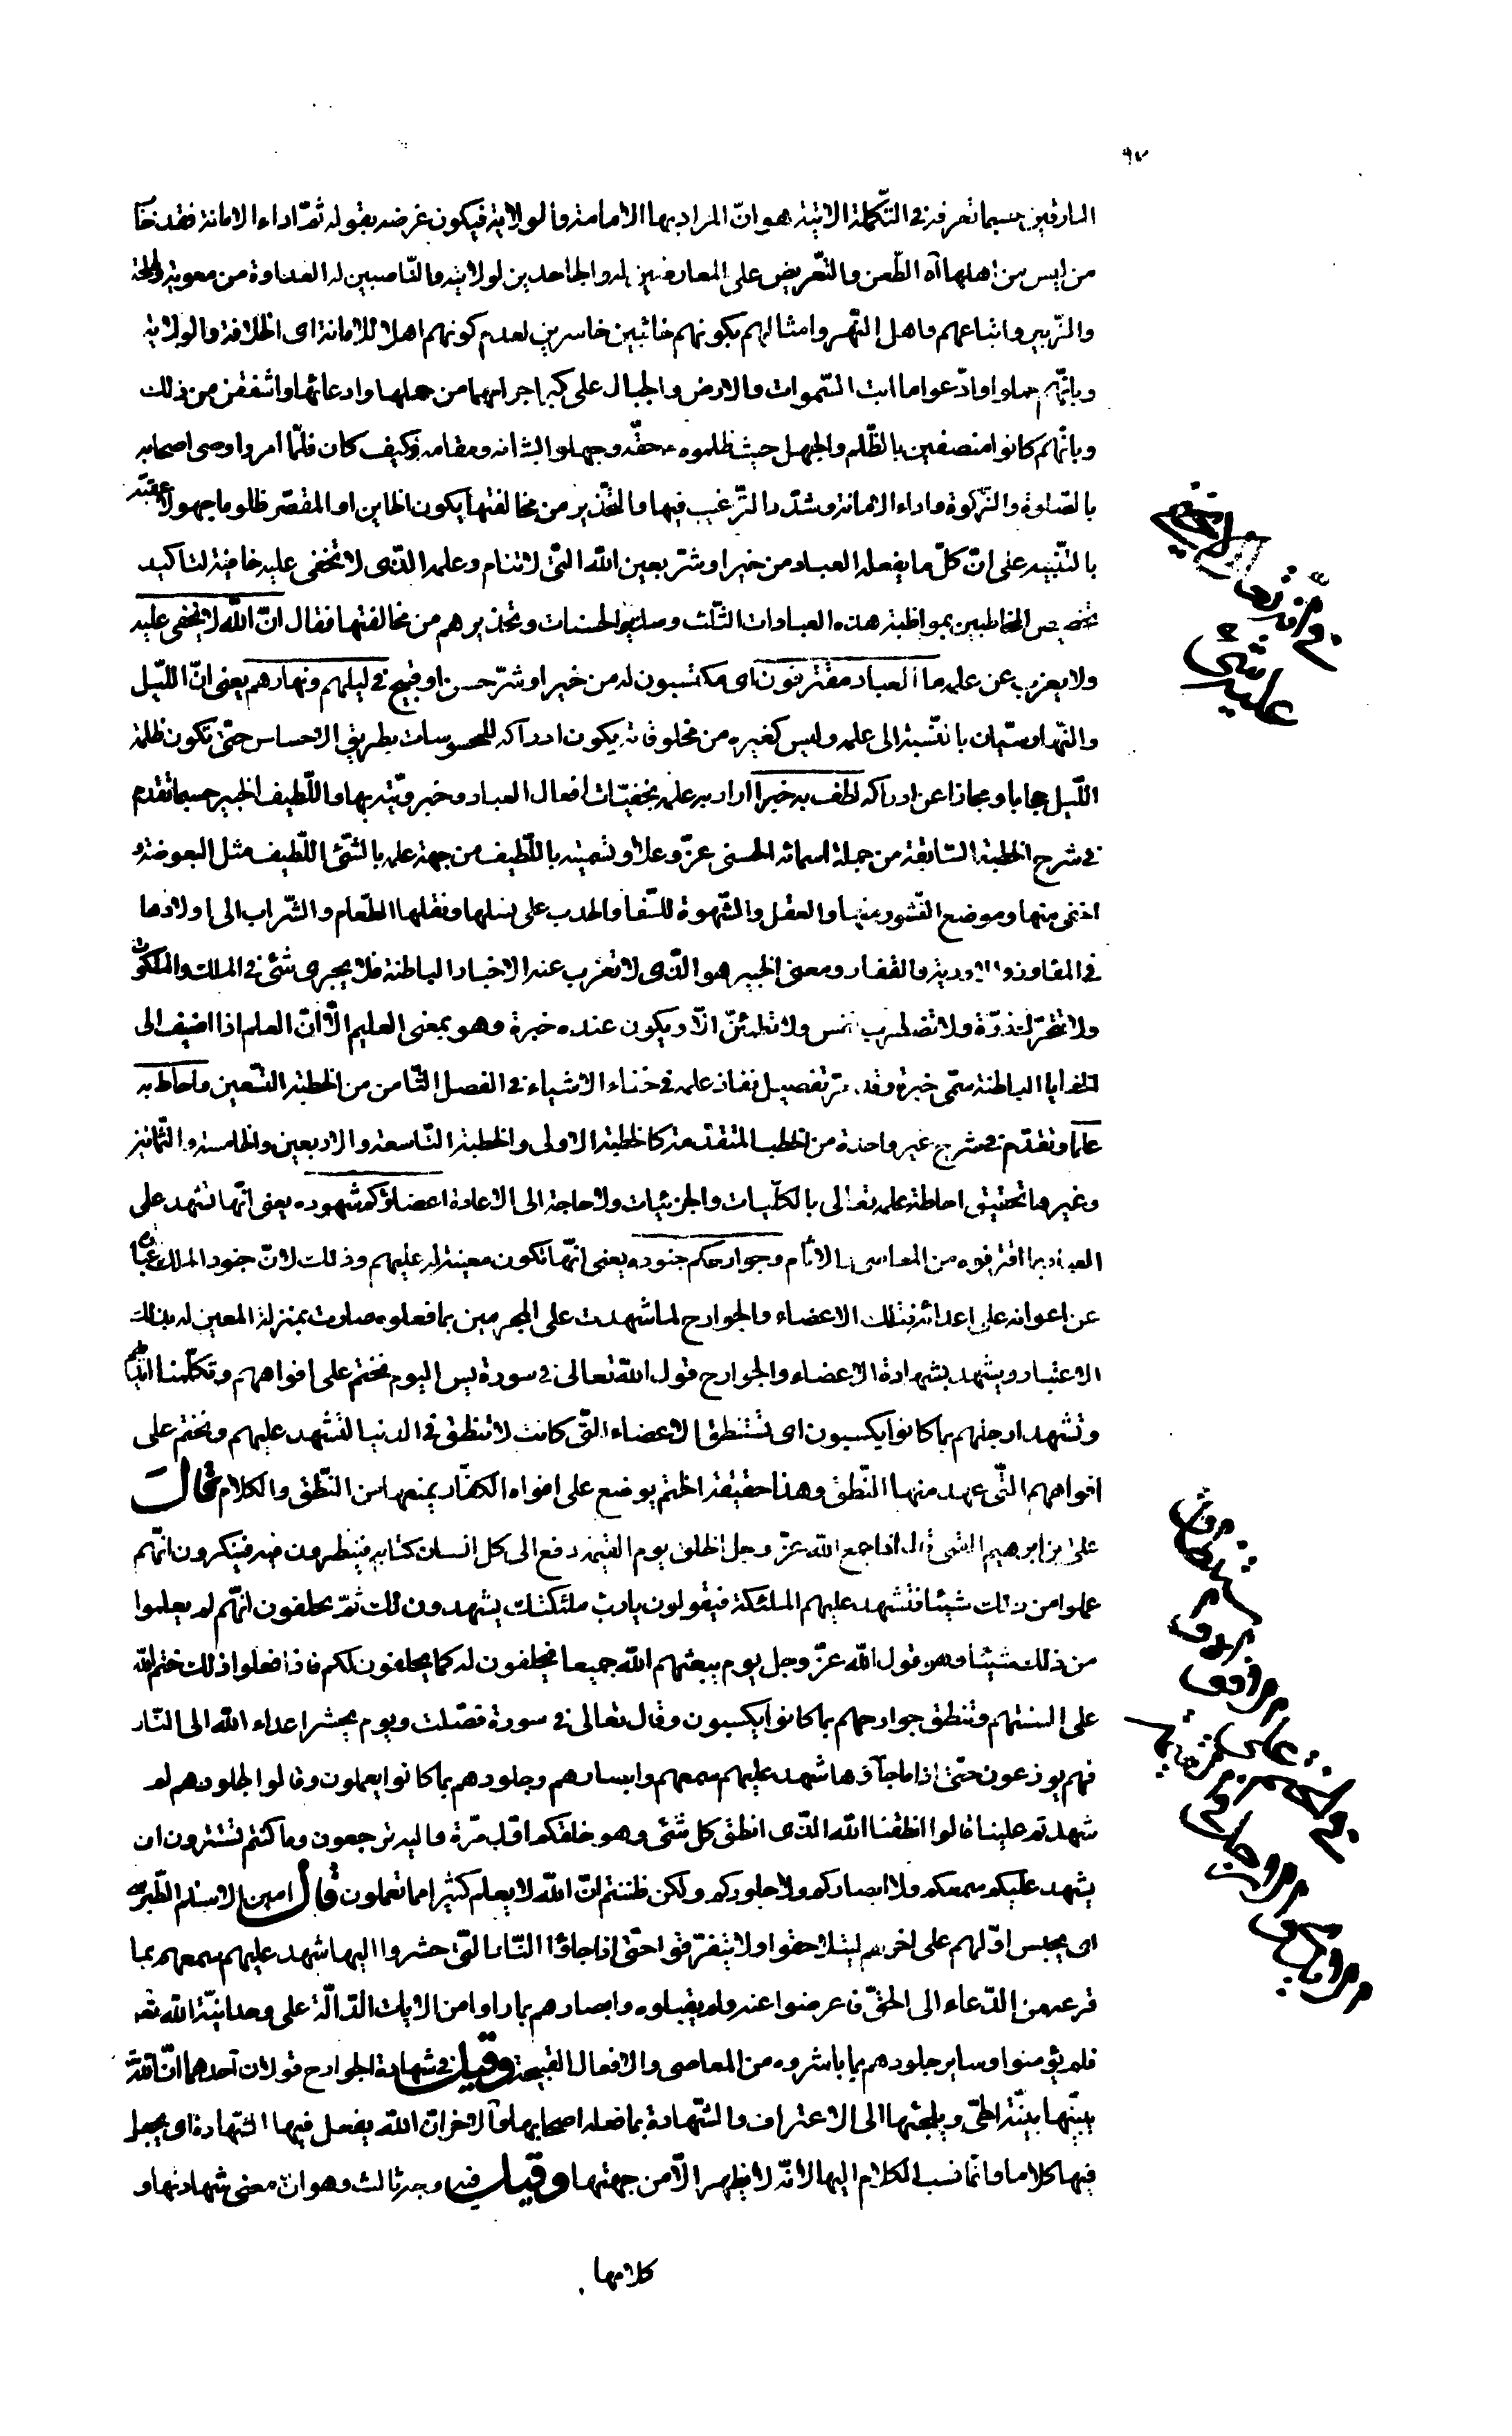 ٩٧
المارقين حسبما تعرفه في التكملة الاتية هو ان المراد بها الامامة والولاية فيكون غرضه بقوله ثمّ اداء الامانة فقد خاب
من ليس من اهلها آه الطّعن والتّعريض على المعارضين له والجاحدين لولايته والنّاصبين له العداوة من معوية وطلحة
والزّبير واتباعهم واهل النّهر وامثالهم بكونهم خائبين خاسرين لعدم كونهم اهلا للامانة اى الخلافة والولاية
وبانّهم حملوا وادّعوا ما ابت السّموات والارض والجبال على كبر اجرامهما من حملها وادعائها واشفقن من ذلك
وبانّهم كانوا متصفين بالظّلم والجهل حيث ظلموه حقّه وجهلوا بشانه ومقامه وكيف كان فلمّا امر واوصى اصحابه
بالصّلوة والزّكوة واداء الامانة وشدّد التّرغيب فيها والتّحذير من مخالفتها بكون الخاين او المقصّر ظلوما جهولا عقّبه
بالتّنبيه على انّ كلّ ما يفعله العباد من خير او شرّ بعين الله التّى لا تنام وعلمه الّذى لا تخفى عليه خافية لتاكيد
تحضيض المخاطبين بمواظبة هذه العبادات الثّلث وساير الحسنات وتحذيرهم من مخالفتها فقال انّ الله لا يخفى عليه
ولا يعزب عن علمه ما العباد مقترفون اى مكتسبون له من خير او شرّ حسن او قبيح في ليلهم ونهارهم يعنى انّ اللّيل
والنّهار سيّان بالنّسبة الى علمه وليس كغيره من مخلوقاته يكون ادراكه للمحسوسات بطريق الاحساس حتّى تكون ظلمة
اللّيل حجابا ومجازا عن ادراكه لطف به خبرا اراد به علمه بخفيّات افعال العباد وخبرويّته بها واللّطيف الخبير حسبما تقدم
في شرح الخطبة السّابقة من جملة اسمائه الحسنى عزّ وعلا وتسميته باللّطيف من جهة علمه بالشّئ اللّطيف مثل البعوضة و
اخفى منها وموضع النّشور منها والعقل والشّهوة للسّفا والحدب على نسلها ونقلها الطّعام والشّراب الى اولادها
في المفاوز والاودية والقفار ومعنى الخبير هو الّذى لا تعزب عنه الاخبار الباطنة فلا يجرى شئ في الملك والملكوت
ولا تتحرّك ذرّة ولا تضطرب نفس ولا تطمئنّ الّا ويكون عنده خبرة وهو بمعنى العليم الّا انّ العلم اذا اضيف الى
الخفايا الباطنة سمّى خبرة وقد مرّ تفصيل نفاذ علمه في خفاء الاشياء في الفصل الثّامن من الخطبة التّسعين واحاط به
علما وتقدّم في شرح غير واحدة من الخطب المتقدّمة كالخطبة الاولى والخطبة التّاسعة والاربعين والخامسة والثّمانين
وغيرها تحقيق احاطة علمه تعالى بالكلّيات والجزئيات ولا حاجة الى الاعادة اعضاؤكم شهوده يعنى انّها تشهد على
العباد بما اقترفوه من المعاصى والاثام وجوارحكم جنوده يعنى انّها تكون معينة له عليهم وذلك لانّ جنود الملك عبارة
عن اعوانه على اعدائه فتلك الاعضاء والجوارح لما شهدت على المجرمين بما فعلوه صارت بمنزلة المعين له بذلك
الاعتبار ويشهد بشهادة الاعضاء والجوارح قول الله تعالى في سورة يس اليوم نختم على افواههم وتكلّمنا ايديهم
وتشهد ارجلهم بما كانوا يكسبون اى نستنطق الاعضاء التّى كانت لا تنطق في الدنيا لتشهد عليهم ونختم على
افواههم التّى عهد منها النّطق وهذا حقيقة الختم يوضع على افواه الكفّار بمنعها من النّطق والكلام قال
علىّ بن ابرهيم القمى قال اذا جمع الله عزّ وجل الخلق يوم القيمة دفع الى كل انسان كتابه فينظرون فيه فينكرون انّهم
عملوا من ذلك شيئا فتشهد عليهم الملئكة فيقولون يا ربّ ملئكتك يشهدون لك ثمّ يحلفون انّهم لم يعملوا
من ذلك شيئا وهو قول الله عزّ وجل يوم يبعثهم الله جميعا فيحلفون له كما يحلفون لكم فاذا فعلوا ذلك ختم الله
على السنتهم وتنطق جوارحهم بما كانوا يكسبون وقال تعالى في سورة فصّلت ويوم يحشر اعداء الله الى النّار
فهم يوزعون حتّى اذا ما جآؤها شهد عليهم سمعهم وابصارهم وجلودهم بما كانوا يعملون وقالوا لجلودهم لم
شهدتم علينا قالوا انطقنا الله الّذى انطق كل شئى وهو خلقكم اوّل مرّة واليه ترجعون وما كنتم تستترون ان
يشهد عليكم سمعكم ولا ابصاركم ولا جلودكم ولكن ظننتم انّ الله لا يعلم كثيرا مما تعملون قال امين الاسلم الطّبرسى
اى يحبس اوّلهم على اخرهم ليتلاحقوا ولا يتفرّقوا حتّى اذا جاؤا النّار التّى حشروا اليها شهد عليهم سمعهم بما
قرعه من الدّعاء الى الحقّ فاعرضوا عنه ولم يقبلوه وابصارهم بما راوا من الايات الدّالّة على وحدانيّة الله تعه
فلم يؤمنوا وساير جلودهم بما باشروه من المعاصى والافعال القبيحة وقيل في شهادة الجوارح قولان احدهما انّ الله
يبنّيها بنيّة الحىّ ويلجئها الى الاعتراف والشّهادة بما فعله اصحابها والاخر انّ الله يفعل فيها الشّهادة اى يجعل
فيها كلاما وانّما نسب الكلام اليها لانّه لا يظهر الّا من جهتها وقيل فيه وجه ثالث وهو ان معنى شهادتها و
كلامها
عليه شئى